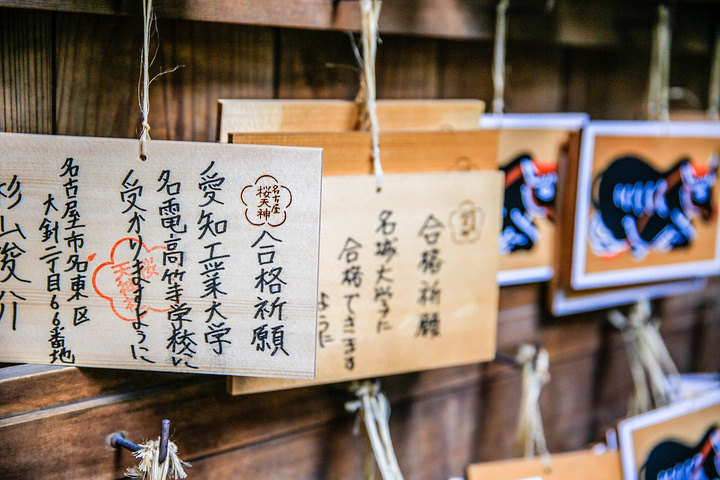 名古屋
桜天神
合格祈願
愛知工業大学
名電高等学校に
受かりますように
名古屋市名東区
大針二丁目66番地
杉山俊介
桜
天神社
合格祈願
名城大学に
合格できます
ように